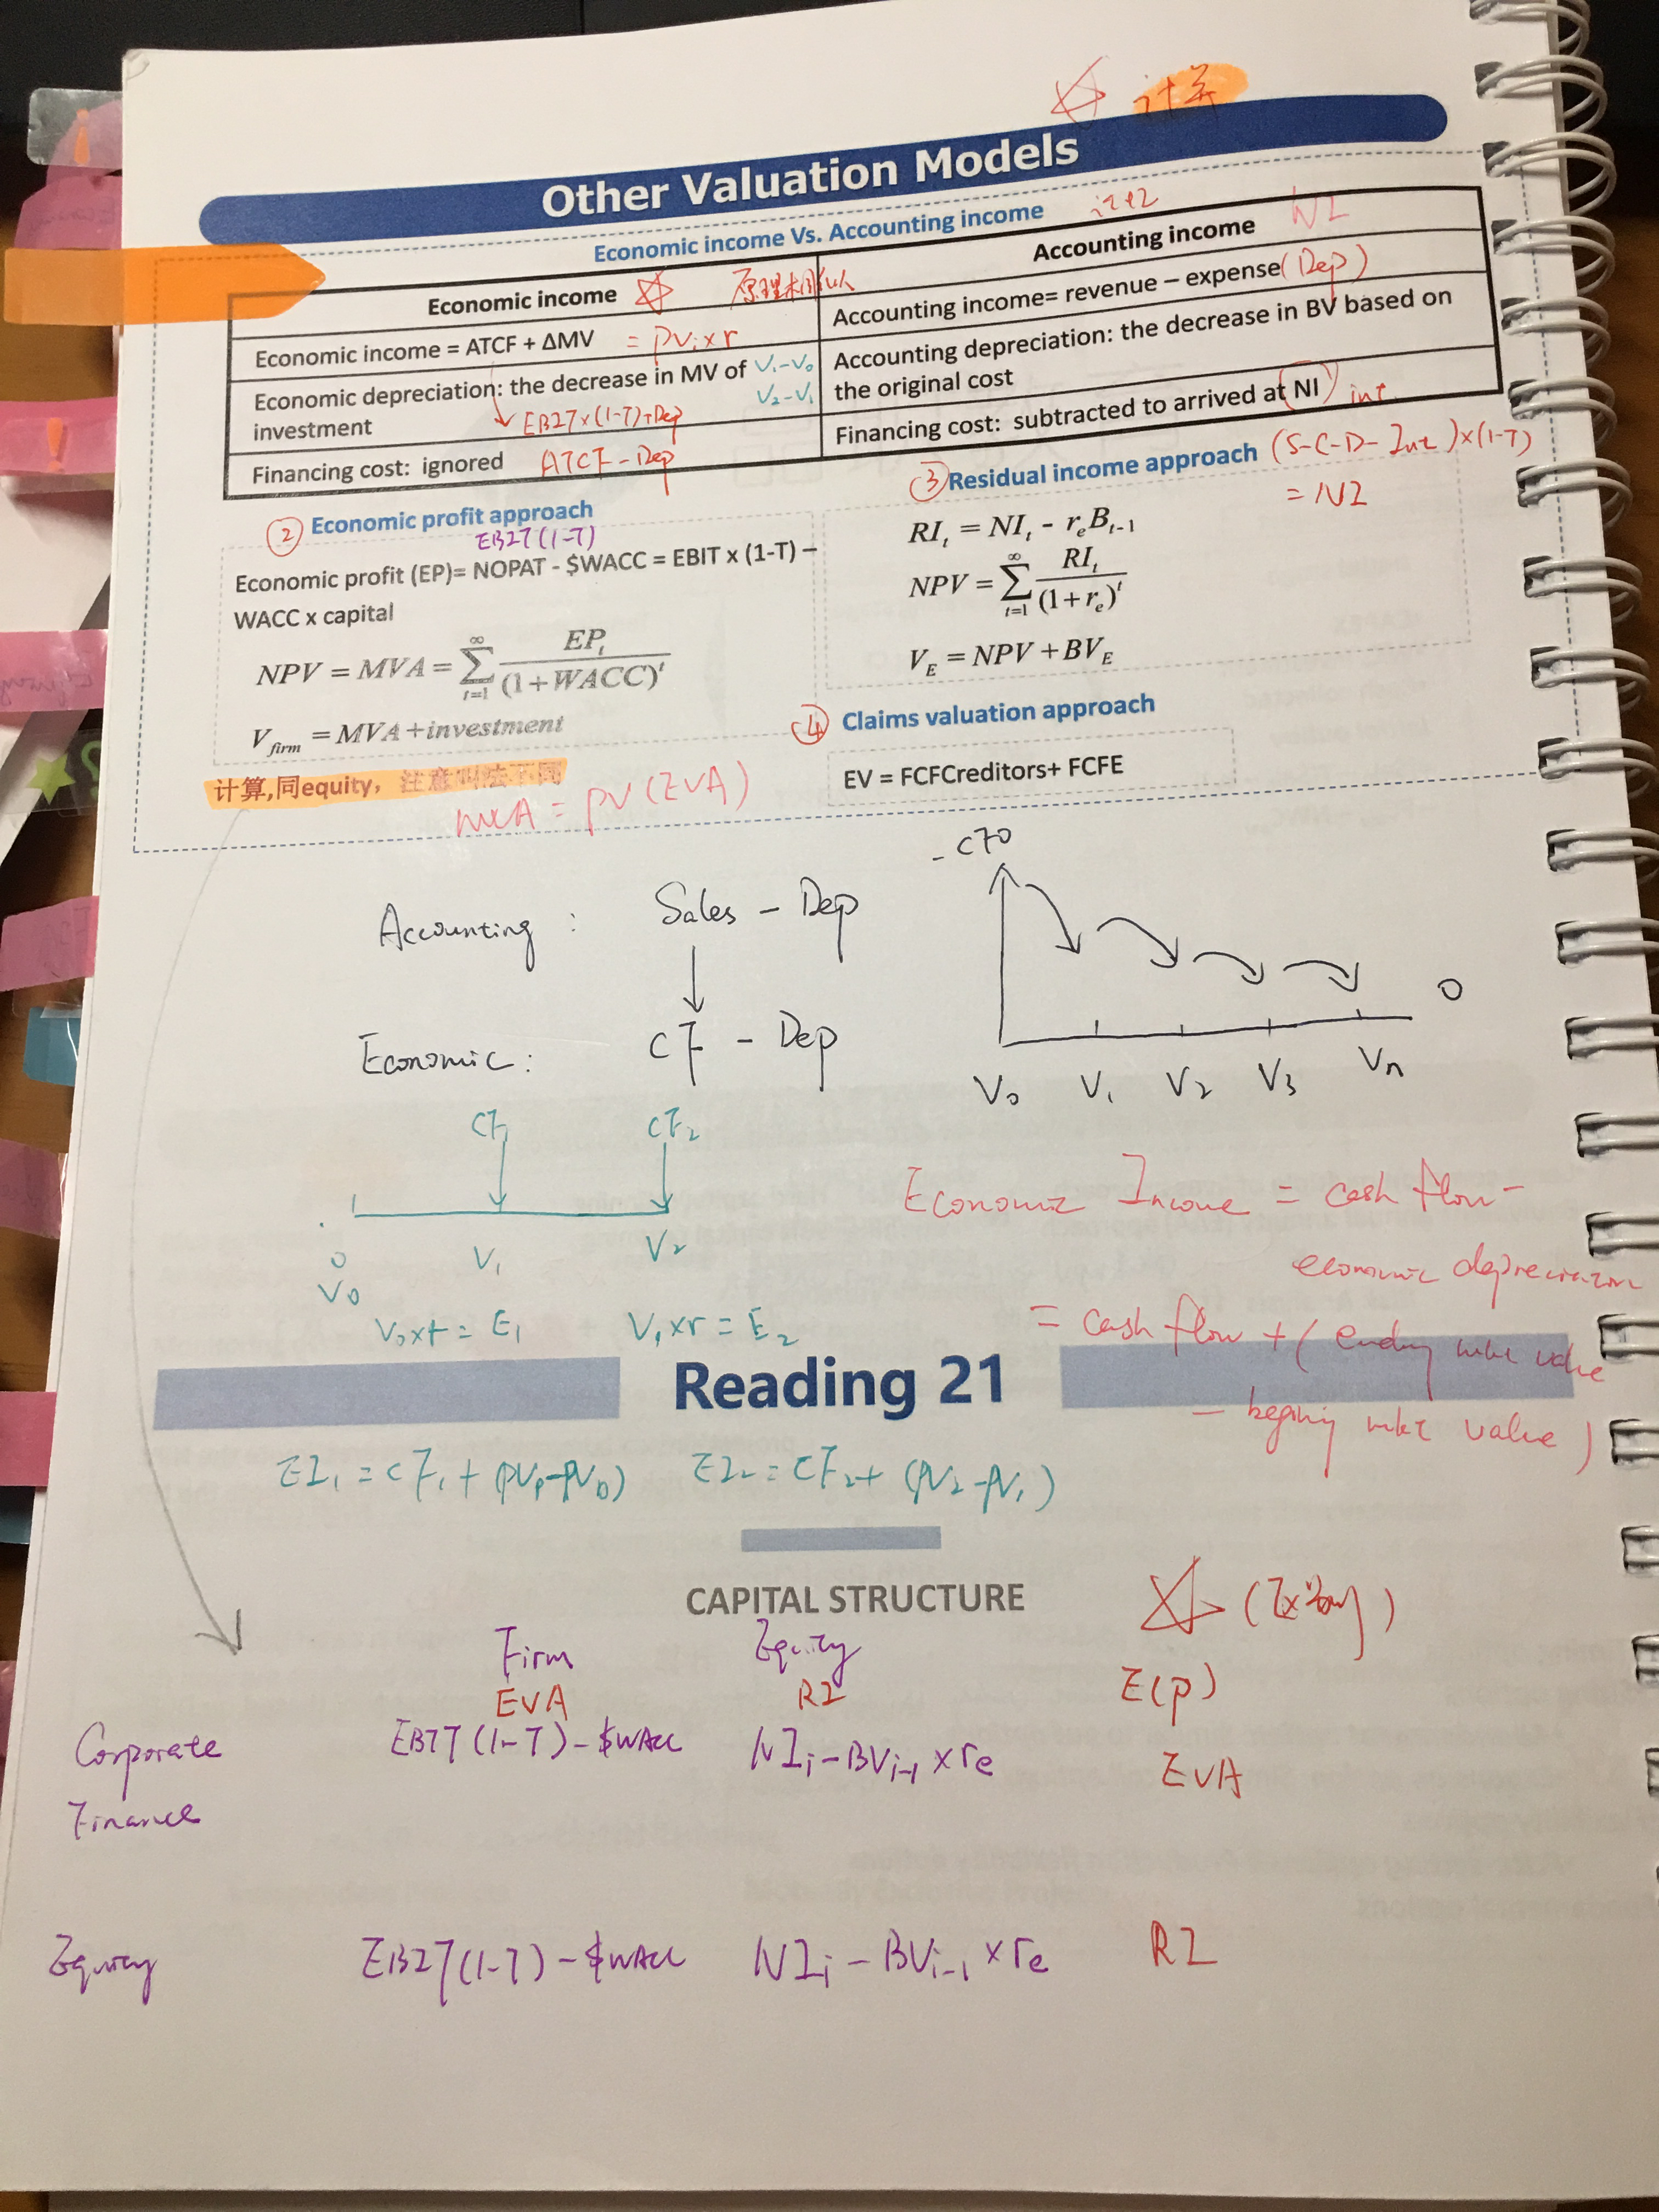 计算
Other Valuation Models
Economic income Vs. Accounting income
Economic income
原理相似
Accounting income
NI
Economic income = ATCF + ΔMV
= PV₁ x r
Accounting income= revenue – expense (Dep)
Economic depreciation: the decrease in MV of
investment
V₁-V₀
V₂-V₁
EBIT x (1-T)+Dep
Accounting depreciation: the decrease in BV based on
the original cost
Financing cost: ignored
ATCF - Dep
Financing cost: subtracted to arrived at NI
int.
② Economic profit approach
EBIT (1-T)
Economic profit (EP)= NOPAT - $WACC = EBIT x (1-T) –
WACC x capital
NPV = MVA = ∑_{t=1}^{∞} EP_t / (1+WACC)^t
V_firm = MVA + investment
计算,同equity，注意叫法不同
MVA = PV (EVA)
③ Residual income approach
(S-C-D-Int) x (1-T)
= NI
RI_t = NI_t - r_e B_{t-1}
NPV = ∑_{t=1}^{∞} RI_t / (1+r_e)^t
V_E = NPV + BV_E
④ Claims valuation approach
EV = FCFCreditors+ FCFE
Accounting : Sales - Dep
Economic : CF - Dep
- CF0
0
V₀ V₁ V₂ V₃ Vn
CF₁ CF₂
0 V₁ V₂
V₀
V₀xr = E₁ V₁xr = E₂
Economic Income = cash flow -
economic depreciation
= cash flow + ( ending mkt value
- beginning mkt value )
Reading 21
EI₁ = CF₁ + (PV₁-PV₀) EI₂ = CF₂ + (PV₂-PV₁)
CAPITAL STRUCTURE
Firm Equity
EVA RI E(p)
Corporate
Finance
EBIT (1-T) - $WACC NI_i - BV_{i-1} x re EVA
Equity EBIT (1-T) - $WACC NI_i - BV_{i-1} x re RI